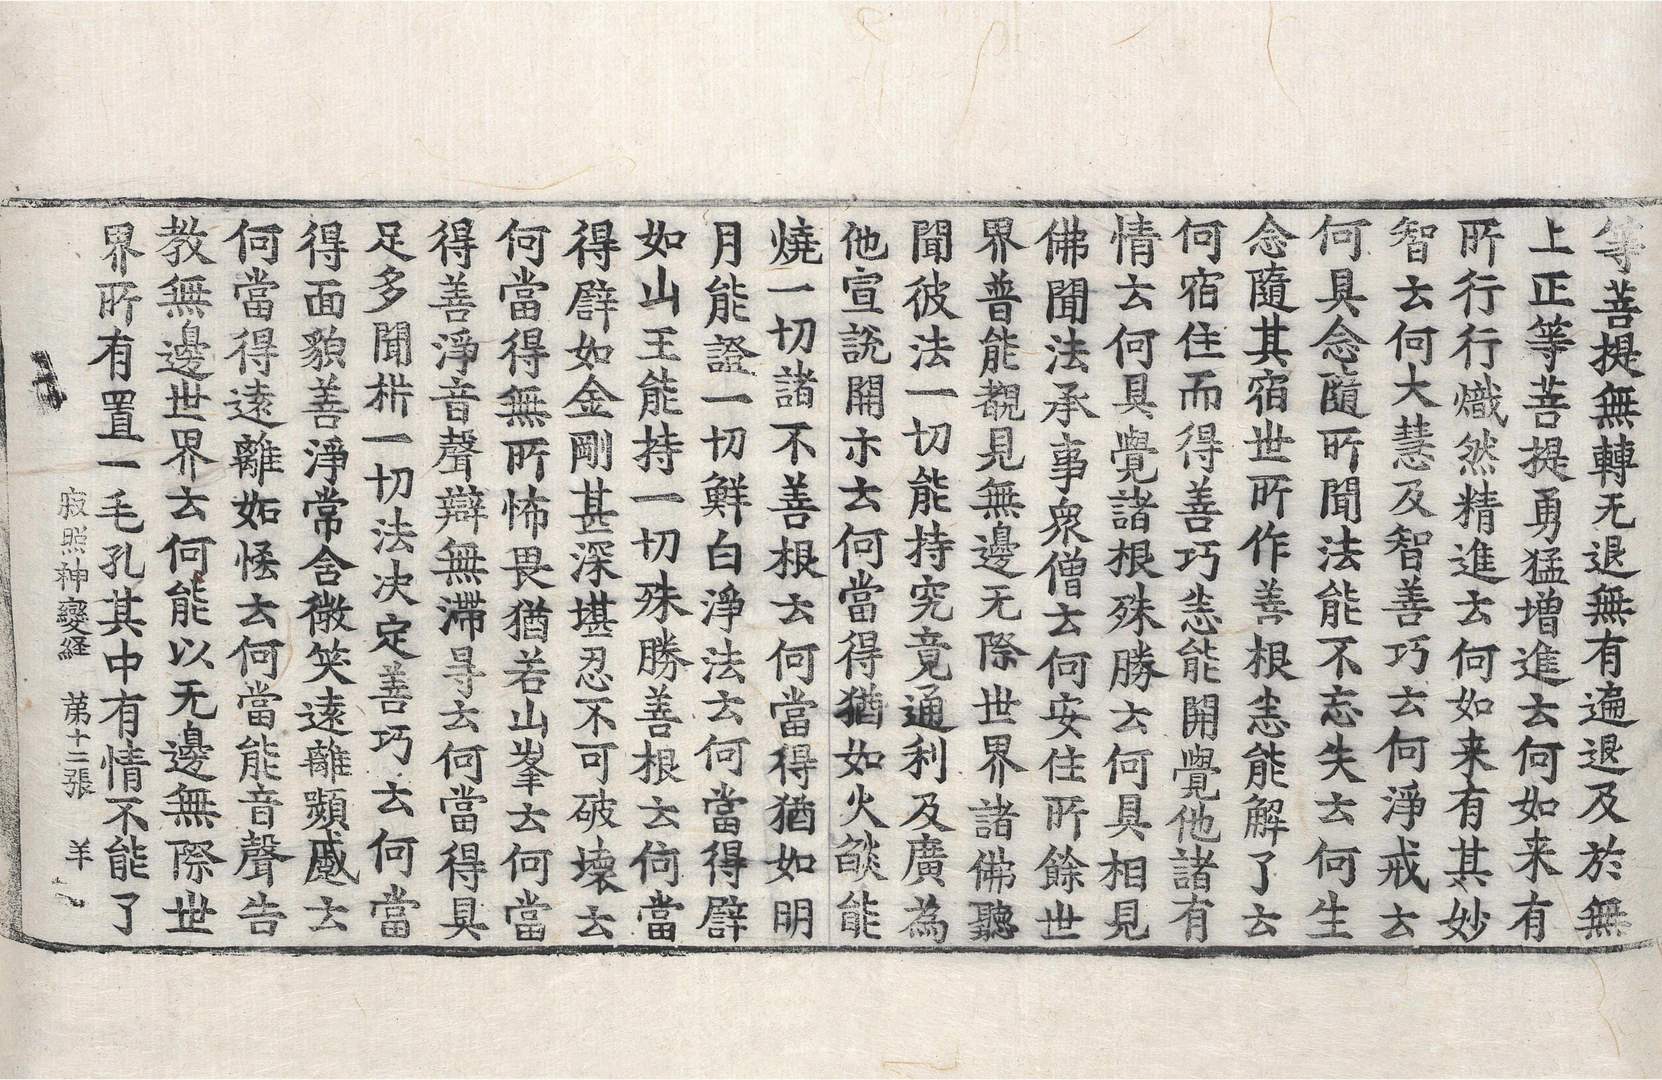 等菩提無轉无退無有遍退及於無
上正等菩提勇猛增進去何如来有
所行行熾然精進去何如来有其妙
智去何大慧及智善巧去何淨戒去
何具念隨所聞法能不忘失去何生
念隨其宿世所作善根恙能解了去
何宿住而得善巧恙能開覺他諸有
情去何具覺諸根殊勝去何具相見
佛聞法承事衆僧去何安住所餘世
界普能觀見無邊无際世界諸佛聽
聞彼法一切能持究竟通利及廣為
他宣說開示去何當得猶如火燄能
燒一切諸不善根去何當得猶如明
月能證一切鮮白淨法去何當得譬
如山王能持一切殊勝善根去何當
得譬如金剛甚深堪忍不可破壞去
何當得無所怖畏猶若山峯去何當
得善淨音聲辯無滯㝵去何當得具
足多聞於一切法决定善巧去何當
得面貌善淨常含微笑遠離顰蹙去
何當得遠離妬慳去何當能音聲告
教無邊世界去何能以无邊無際世
界所有置一毛孔其中有情不能了
寂照神變経 第十二張 羊